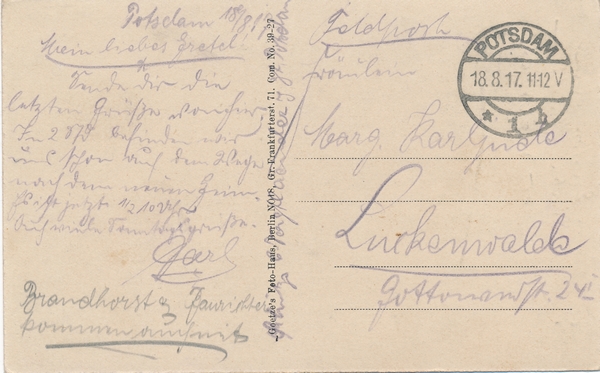 Potsdam 18/8.17
Mein liebes Gretel!
Sende dir die
letzten Grüße von hier.
In 2 Std befinden wir
uns schon auf dem Wege
nach dem neuen Heim.
Es ist jetzt 1/2 10 Uhr
Auch viele Sonntagsgrüße.
Carl
Brandhorst &
kommen auch mit
Goetze's Foto-Haus, Berlin NO18, Gr. Frankfurterst. 71. Com. No. 39-27
Feldpost
POTSDAM
18.8.17. 11-12 V
* 1 h
Fräulein
Marg.
Luckenwalde
Gottowerstr. 24